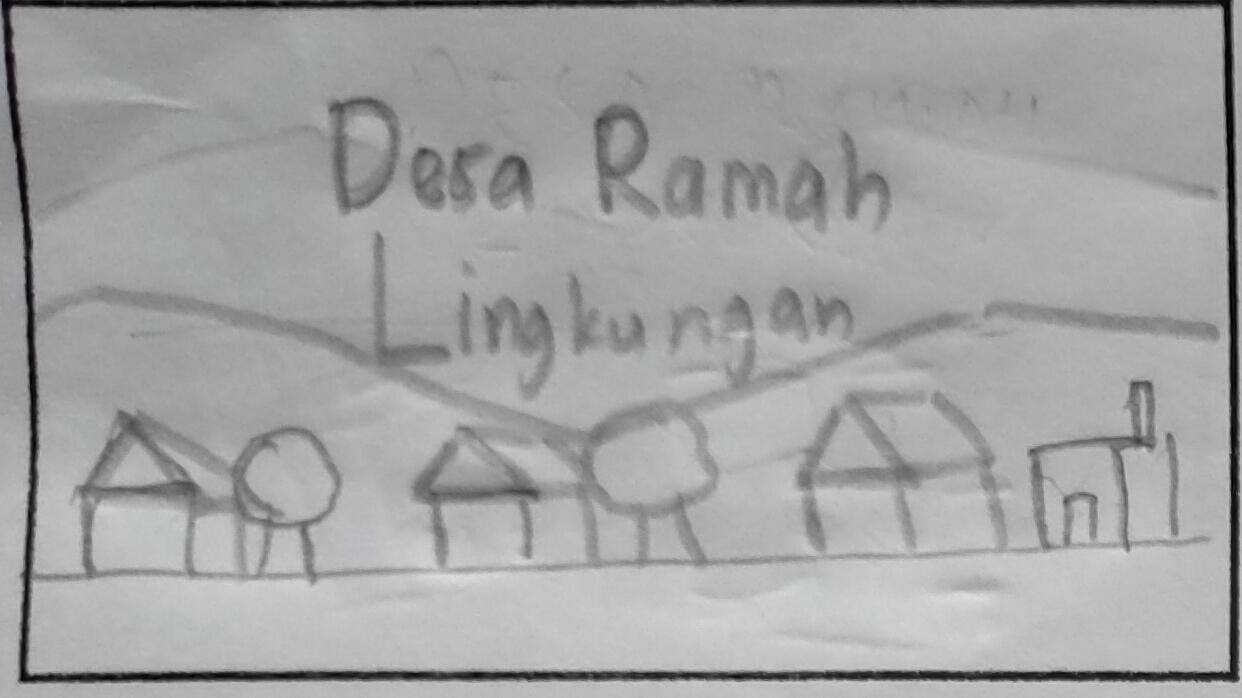 Desa Ramah
Lingkungan